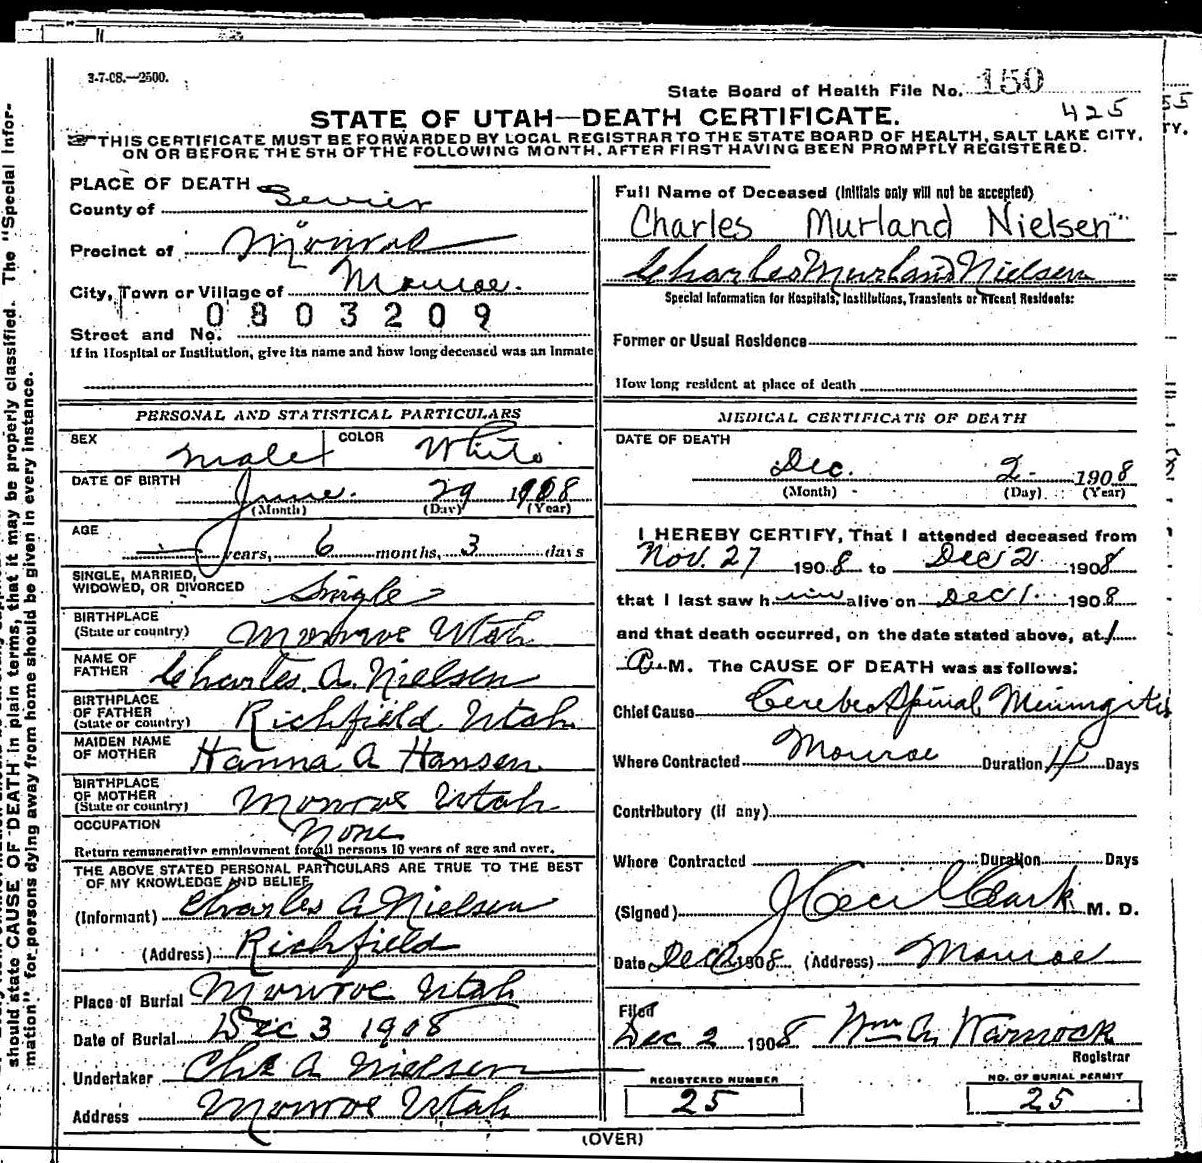 3-7-08.—2500.
State Board of Health File No. 150
425
STATE OF UTAH—DEATH CERTIFICATE.
THIS CERTIFICATE MUST BE FORWARDED BY LOCAL REGISTRAR TO THE STATE BOARD OF HEALTH, SALT LAKE CITY,
ON OR BEFORE THE 5TH OF THE FOLLOWING MONTH, AFTER FIRST HAVING BEEN PROMPTLY REGISTERED.
PLACE OF DEATH
County of Sevier
Precinct of Monroe
City, Town or Village of Monroe.
0803209
Street and No.
If in Hospital or Institution, give its name and how long deceased was an Inmate
PERSONAL AND STATISTICAL PARTICULARS
SEX Male COLOR White
DATE OF BIRTH June. 29 1908
(Month) (Day) (Year)
AGE — years, 6 months, 3 days
SINGLE, MARRIED,
WIDOWED, OR DIVORCED Single
BIRTHPLACE
(State or country) Monroe Utah
NAME OF
FATHER Charles. A. Nielsen
BIRTHPLACE
OF FATHER
(State or country) Richfield Utah
MAIDEN NAME
OF MOTHER Hanna A Hansen
BIRTHPLACE
OF MOTHER
(State or country) Monroe Utah
OCCUPATION None
Return remunerative employment for all persons 10 years of age and over.
THE ABOVE STATED PERSONAL PARTICULARS ARE TRUE TO THE BEST
OF MY KNOWLEDGE AND BELIEF
(Informant) Charles A Nielsen
(Address) Richfield
Place of Burial Monroe Utah
Date of Burial Dec 3 1908
Undertaker Chs A Nielsen
Address Monroe Utah
Full Name of Deceased (Initials only will not be accepted)
Charles Murland Nielsen
Charles Murland Nielsen
Special Information for Hospitals, Institutions, Transients or Recent Residents:
Former or Usual Residence
How long resident at place of death
MEDICAL CERTIFICATE OF DEATH
DATE OF DEATH
Dec. 2 1908
(Month) (Day) (Year)
I HEREBY CERTIFY, That I attended deceased from
Nov. 27 1908 to Dec 2 1908
that I last saw him alive on Dec 1. 1908
and that death occurred, on the date stated above, at 1
A. M. The CAUSE OF DEATH was as follows:
Chief Cause Cerebro Spinal Miningitis
Where Contracted Monroe Duration 4 Days
Contributory (if any)
Where Contracted Duration Days
(Signed) J Cecil Clark M. D.
Date Dec 2 1908 (Address) Monroe
Filed
Dec 2 1908 Wm A Warnock
Registrar
REGISTERED NUMBER
25
NO. OF BURIAL PERMIT
25
(OVER)
should state CAUSE OF DEATH in plain terms, that it may be properly classified. The "Special Infor-
mation" for persons dying away from home should be given in every instance.